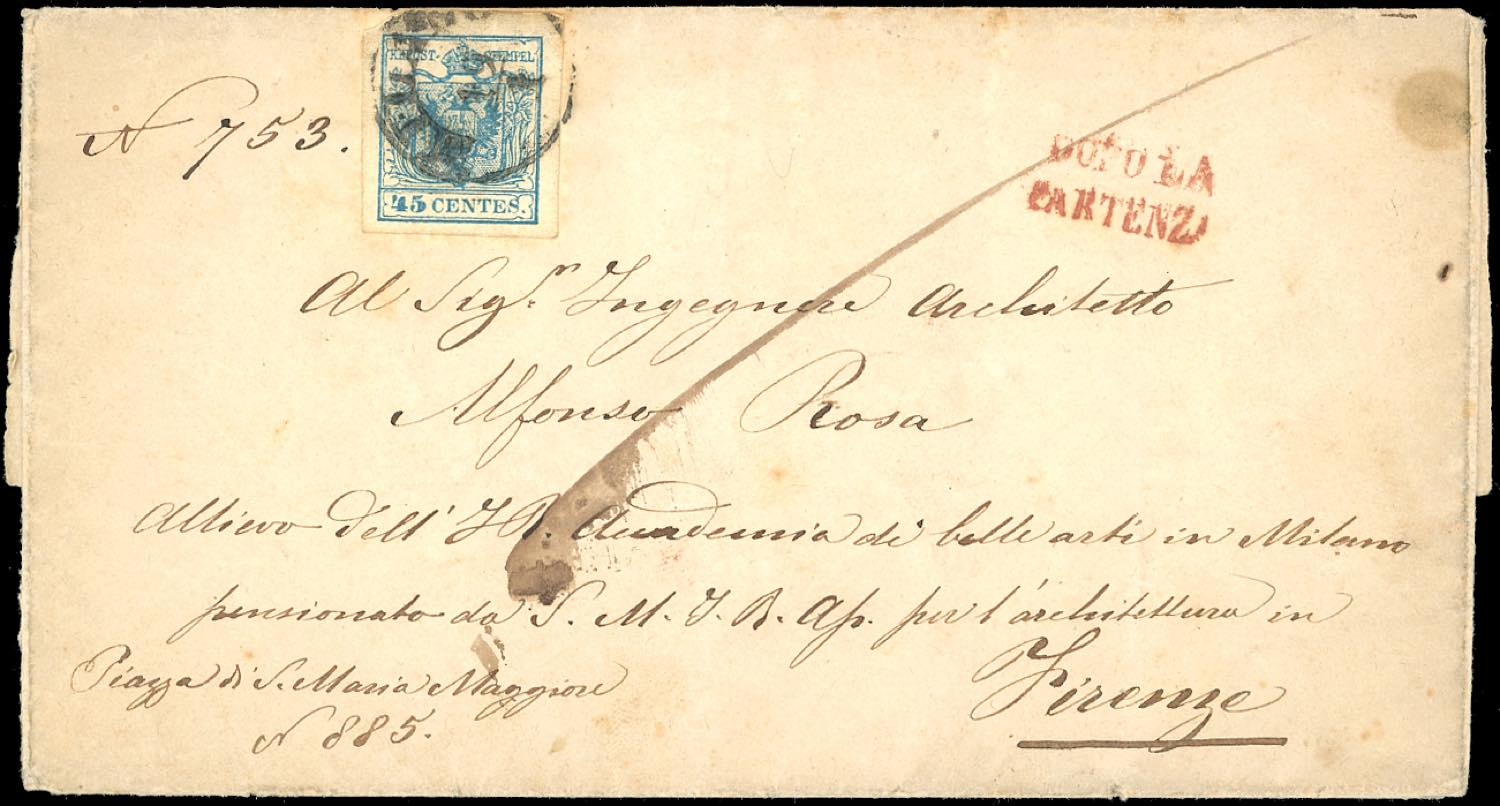 KAIS.T STEMPEL
45 CENTES.
N 753.
DOPO LA
PARTENZA
Al Sig.r Ingegnere Architetto
Alfonso Rosa
Allievo dell' I R. Accademia di belle arti in Milano
pensionato da S. M. I. R. Ap. per l'architettura in
Firenze
Piazza di S. Maria Maggiore
N 885.